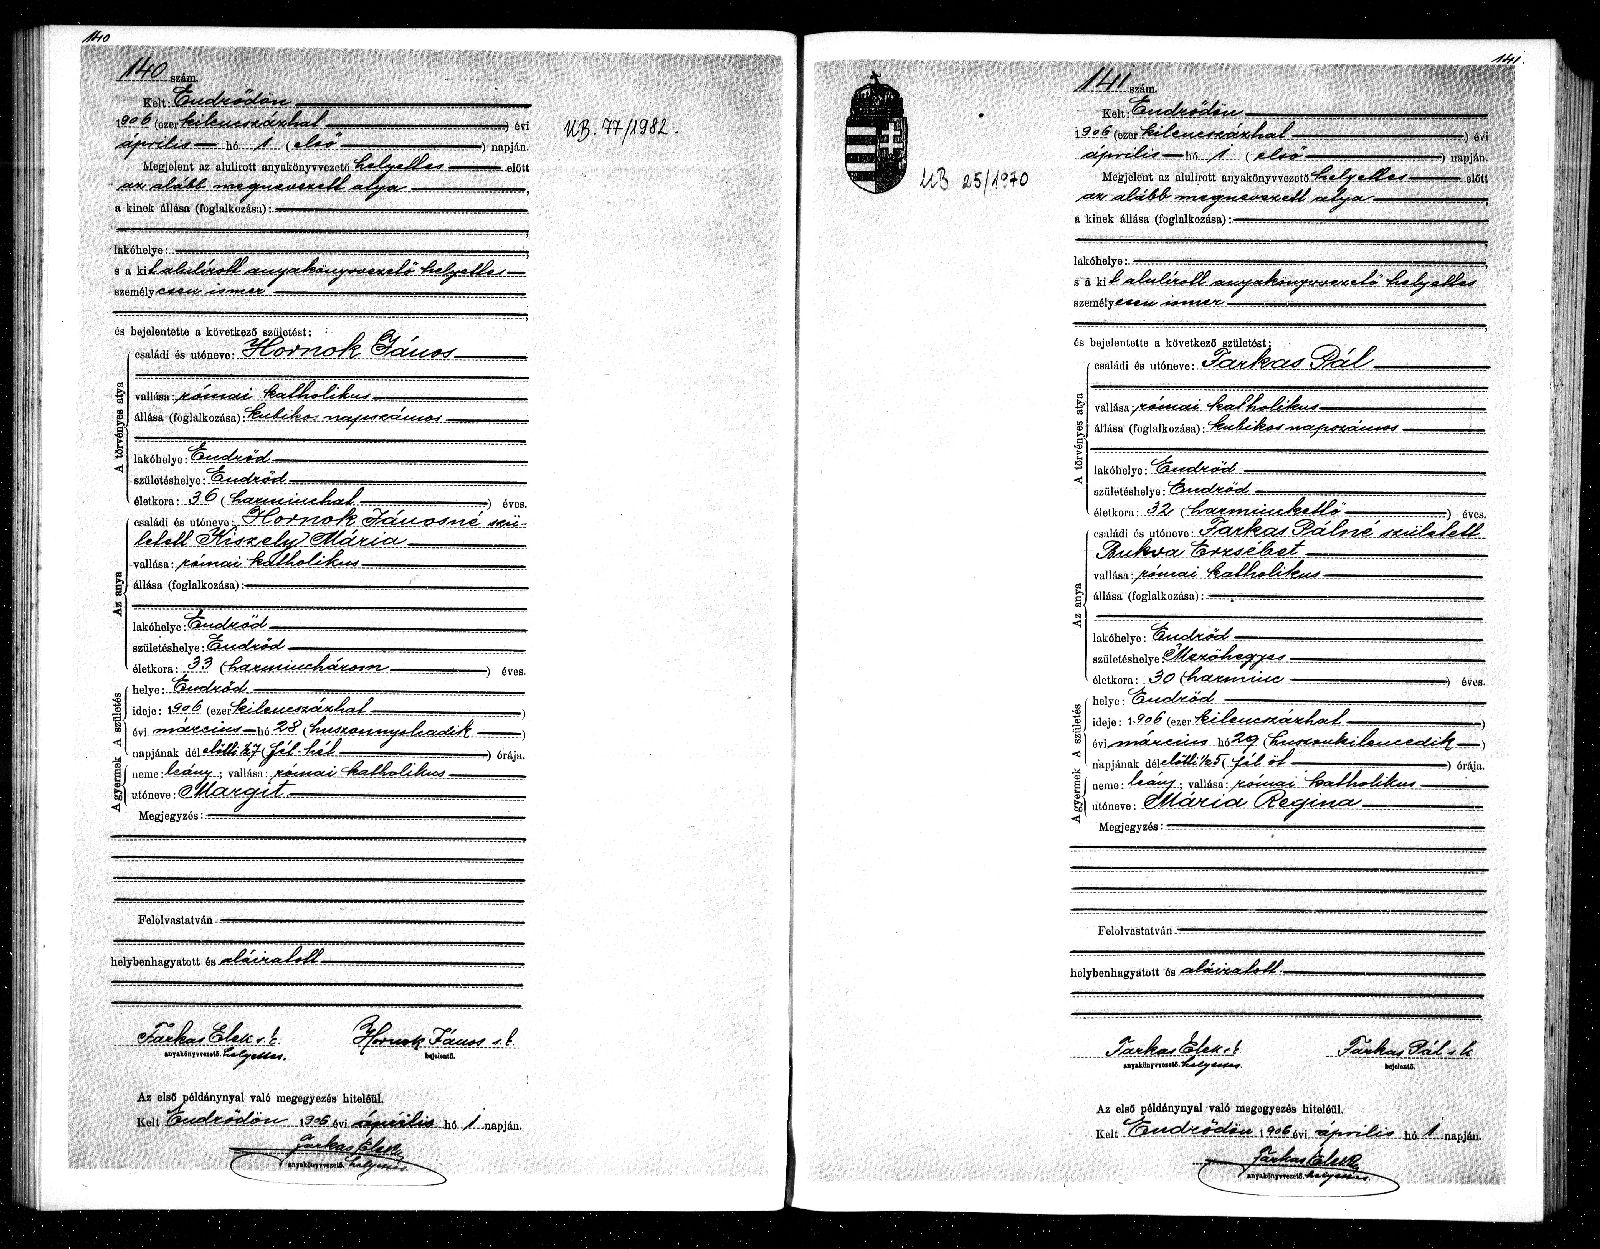 140
140 szám.
Kelt: Endrődön
1906 (ezer kilencszázhat ) évi
április hó 1 ( első ) napján.
Megjelent az alulirott anyakönyvvezető helyettes előtt
az alább megnevezett atya
a kinek állása (foglalkozása):
lakóhelye:
s a kit alulírott anyakönyvvezető helyettes
személyesen ismer
és bejelentette a következő születést:
A törvényes atya
családi és utóneve: Hornok János
vallása: római katholikus
állása (foglalkozása): kubikos napszámos
lakóhelye: Endrőd
születéshelye: Endrőd
életkora: 36 ( harminchat ) éves.
Az anya
családi és utóneve: Hornok Jánosné szü-
letett Kiszely Mária
vallása: római katholikus
állása (foglalkozása):
lakóhelye: Endrőd
születéshelye: Endrőd
életkora: 33 ( harminchárom ) éves.
A gyermek A születés
helye: Endrőd
ideje: 1906 (ezer kilencszázhat )
évi március hó 28 ( huszonnyolcadik )
napjának dél előtti ½7 ( fél hét ) órája.
neme: leány; vallása: római katholikus
utóneve: Margit
Megjegyzés:
Felolvastatván
helybenhagyatott és aláiratott
Farkas Elek s.k. Hornok János s.k.
anyakönyvvezető. helyettes. bejelentő.
Az első példánynyal való megegyezés hiteléül.
Kelt Endrődön 1906 évi április hó 1 napján.
Farkas Elek
anyakönyvvezető. helyettes.
UB. 77/1982.
141.
UB 25/1970
141 szám.
Kelt: Endrődön
1906 (ezer kilencszázhat ) évi
április hó 1 ( első ) napján.
Megjelent az alulirott anyakönyvvezető helyettes előtt
az alább megnevezett atya
a kinek állása (foglalkozása):
lakóhelye:
s a kit alulírott anyakönyvvezető helyettes
személyesen ismer
és bejelentette a következő születést:
A törvényes atya
családi és utóneve: Farkas Pál
vallása: római katholikus
állása (foglalkozása): kubikos napszámos
lakóhelye: Endrőd
születéshelye: Endrőd
életkora: 32 ( harminckettő ) éves.
Az anya
családi és utóneve: Farkas Pálné született
Bukva Erzsébet
vallása: római katholikus
állása (foglalkozása):
lakóhelye: Endrőd
születéshelye: Mezőhegyes
életkora: 30 ( harminc ) éves.
A gyermek A születés
helye: Endrőd
ideje: 1906 (ezer kilencszázhat )
évi március hó 29 ( huszonkilencedik )
napjának dél előtti ½5 ( fél öt ) órája.
neme: leány; vallása: római katholikus
utóneve: Mária Regina
Megjegyzés:
Felolvastatván
helybenhagyatott és aláiratott
Farkas Elek s.k. Farkas Pál s.k.
anyakönyvvezető. helyettes. bejelentő.
Az első példánynyal való megegyezés hiteléül.
Kelt Endrődön 1906 évi április hó 1 napján.
Farkas Elek
anyakönyvvezető. helyettes.